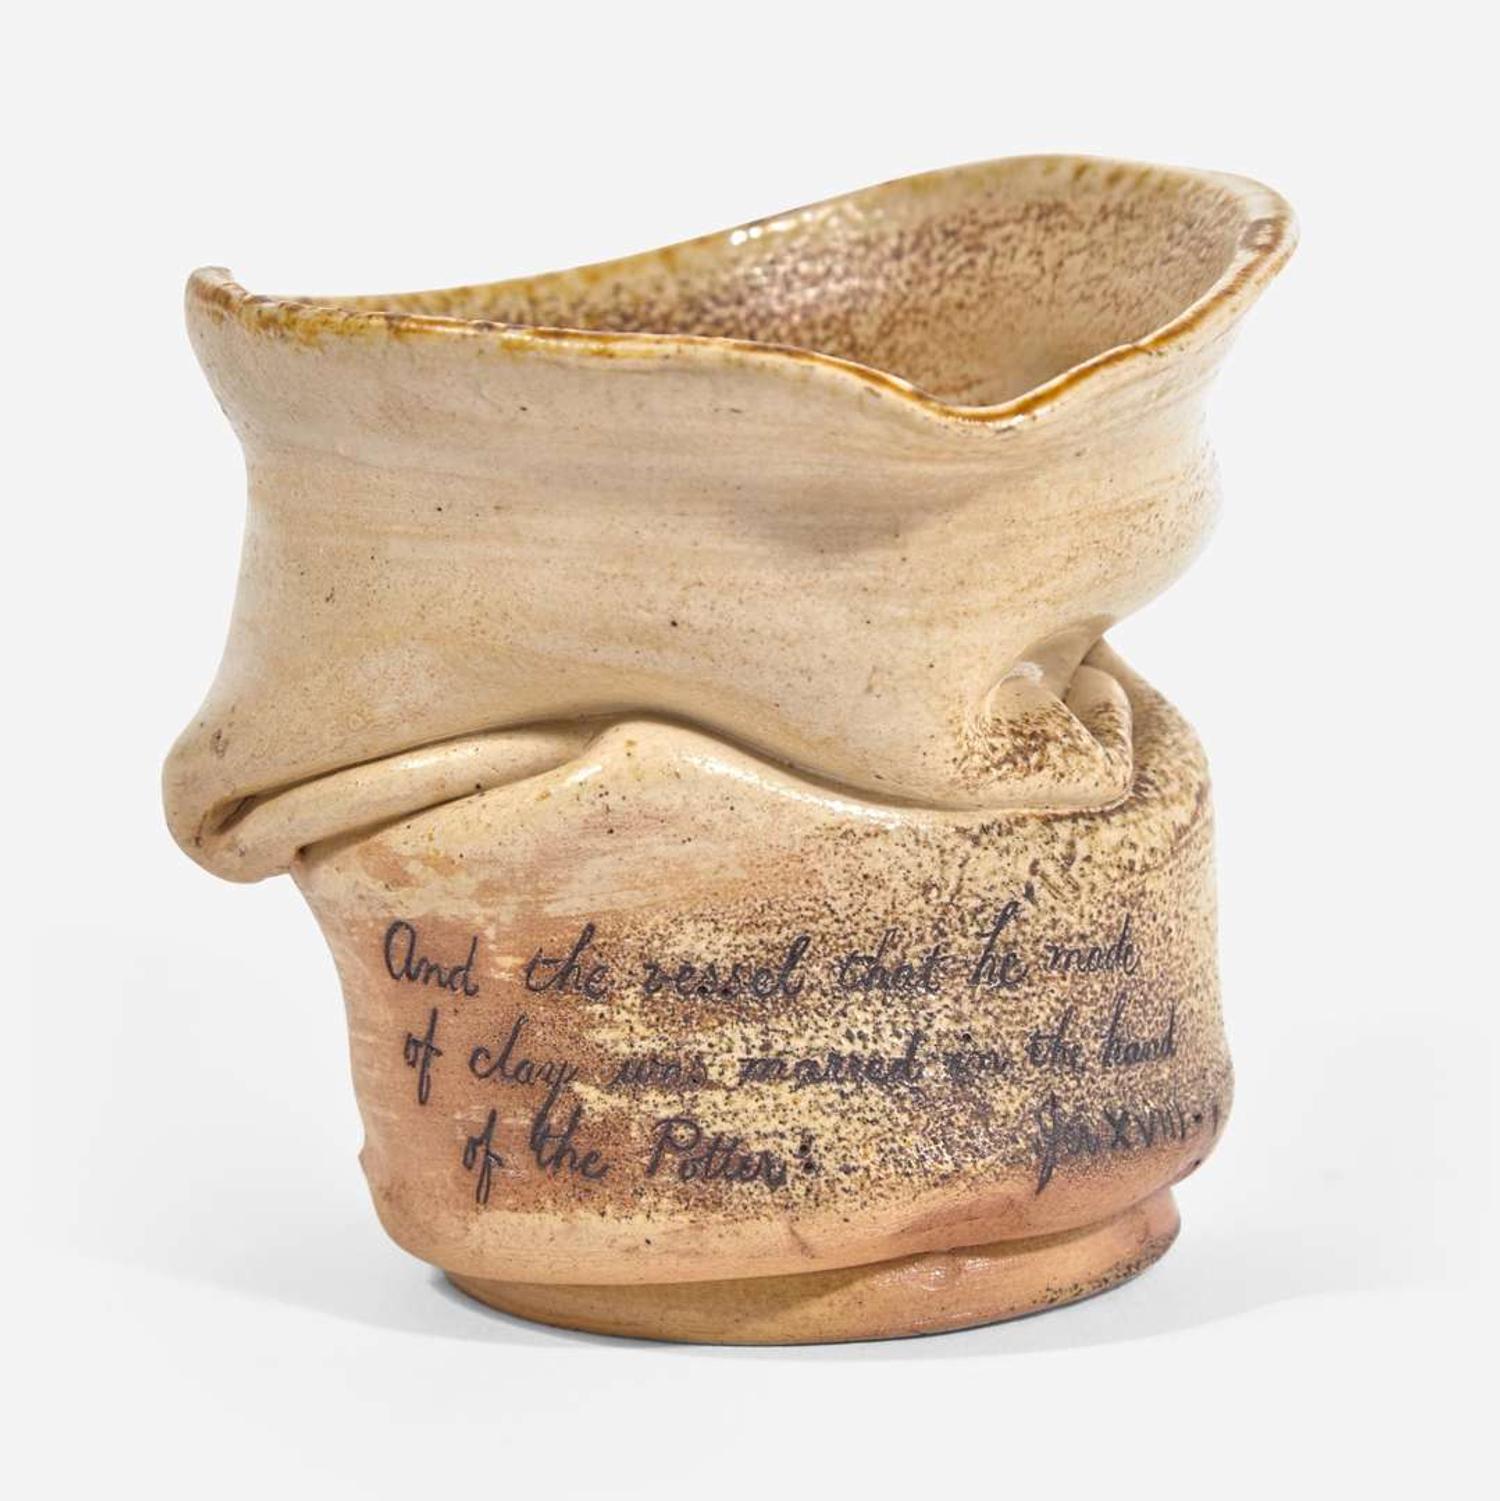 And the vessel that he made
of clay was marred in the hand
of the Potter:   Jer XVIII.